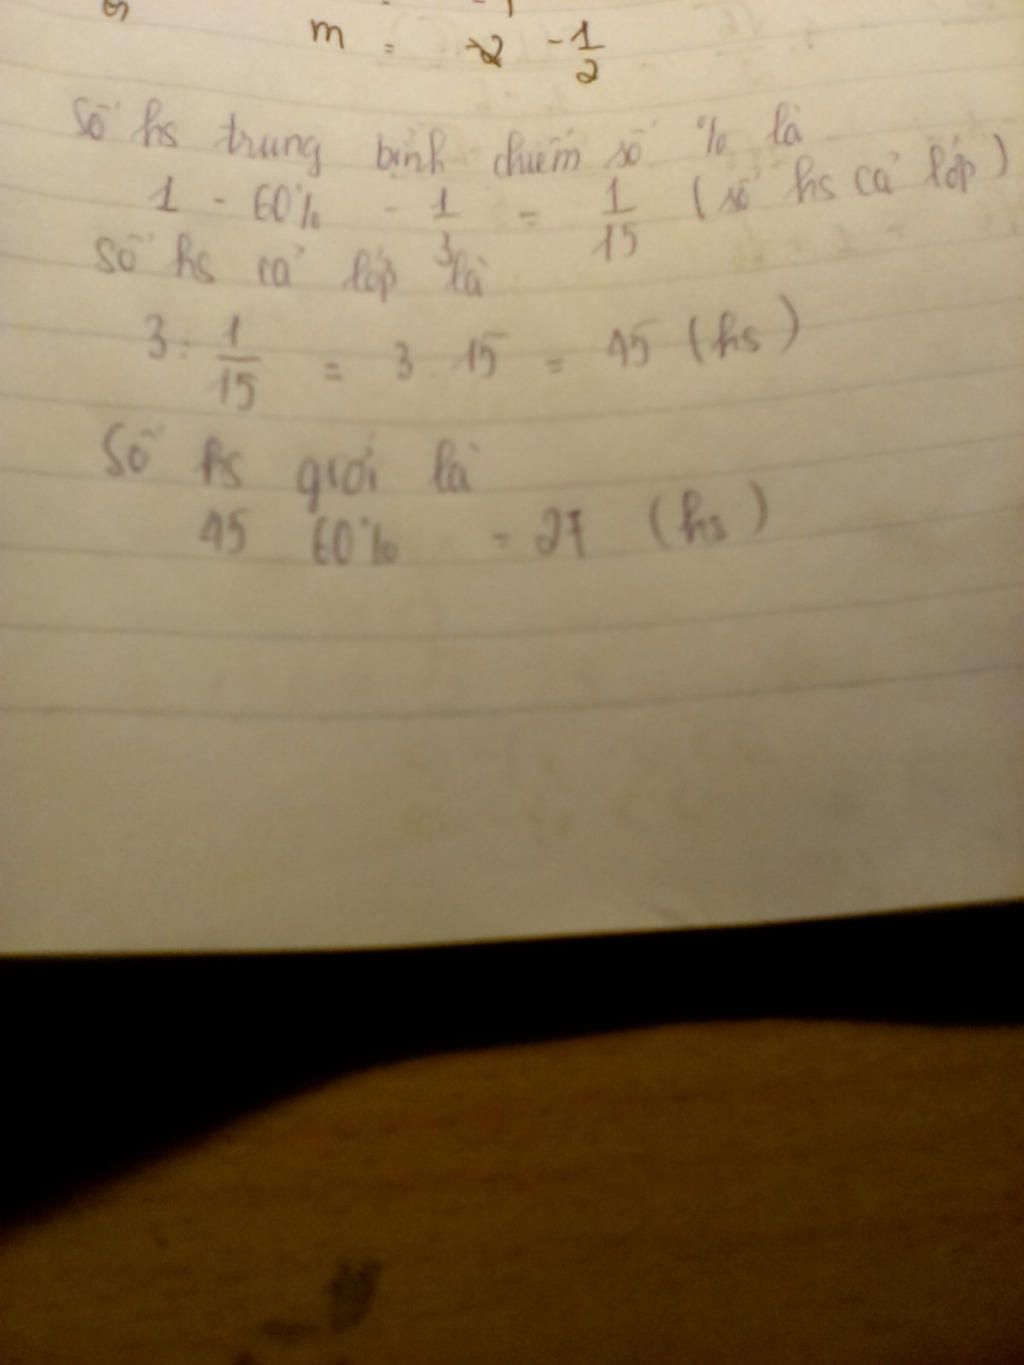 m = -2 - 1/2
Số hs trung bình chiếm số % là
1 - 60% - 1/3 = 1/15 (số hs cả lớp)
Số hs cả lớp là
3 : 1/15 = 3 . 15 = 45 (hs)
Số hs giỏi là
45 60% = 27 (hs)